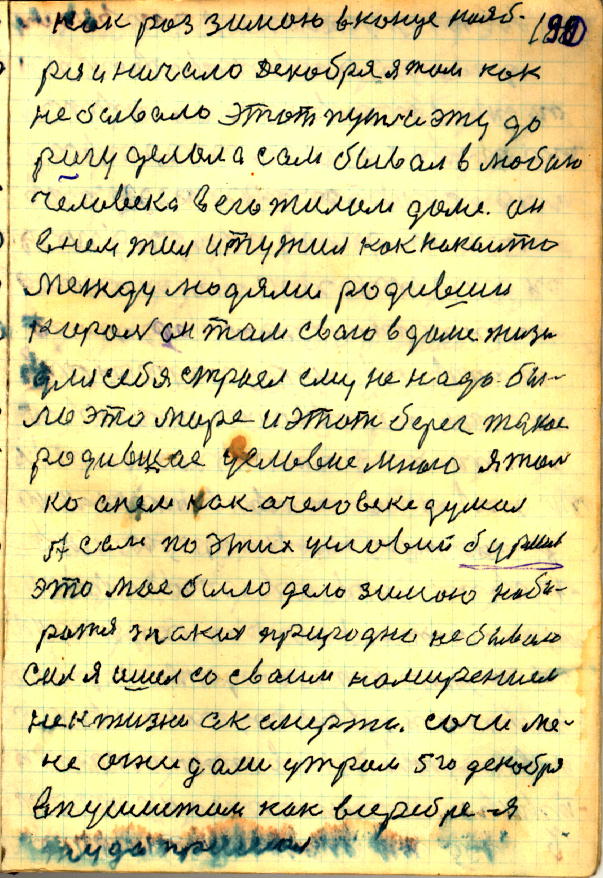 как роз зимою вконце нояб-
ря и ничало декобря я там как
небывало этот путь и эту до
рогу делола сам бывал в любою
человека в его жилом доме. он
внем жил и тужил как какоито
между людями родивши
он там сваго в доме жизь
для себя строел ему не надо бы-
ло это море и этот берег такое
родившае условие много я тол
ко онем как очеловеке думал
А сам по этих условий буршил
это мое было дело зимою наби-
ратя таких природно небывало
сил я ишел со сваим намирением
не к жизни ак смерти. сочи ме-
не ожидали утром 5 го декобря
впушистом как всеребре я
туда приехал